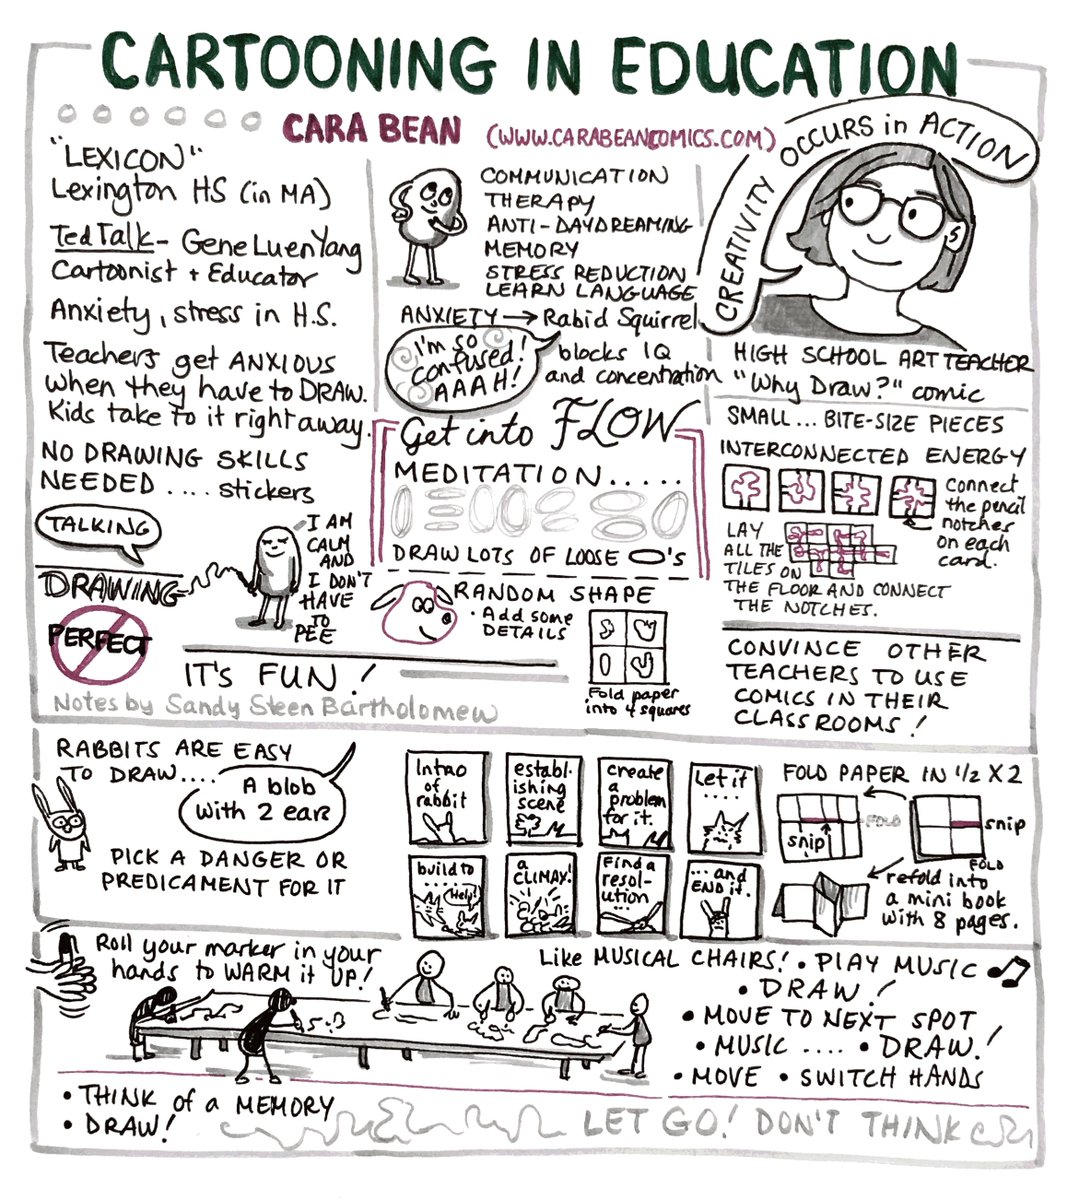 CARTOONING IN EDUCATION
CARA BEAN (WWW.CARABEANCOMICS.COM)
"LEXICON"
Lexington HS (in MA)
Ted Talk - Gene Luen Yang
Cartoonist + Educator
Anxiety, stress in H.S.
Teachers get ANXIOUS
when they have to DRAW.
Kids take to it right away.
NO DRAWING SKILLS
NEEDED .... stickers
TALKING
DRAWING
PERFECT
I AM
CALM
AND
I DON'T
HAVE
TO
PEE
IT'S FUN!
Notes by Sandy Steen Bartholomew
COMMUNICATION
THERAPY
ANTI-DAYDREAMING
MEMORY
STRESS REDUCTION
LEARN LANGUAGE
ANXIETY → Rabid Squirrel
I'm so
confused!
AAAH!
blocks IQ
and concentration
Get into FLOW
MEDITATION.....
DRAW LOTS OF LOOSE O's
RANDOM SHAPE
• Add some
DETAILS
Fold paper
into 4 squares
CREATIVITY OCCURS in ACTION
HIGH SCHOOL ART TEACHER
"Why Draw?" comic
SMALL... BITE-SIZE PIECES
INTERCONNECTED ENERGY
Connect
the pencil
notches
on each
card.
LAY
ALL THE
TILES ON
THE FLOOR AND CONNECT
THE NOTCHES.
CONVINCE OTHER
TEACHERS TO USE
COMICS IN THEIR
CLASSROOMS!
RABBITS ARE EASY
TO DRAW....
A blob
with 2 ears
PICK A DANGER OR
PREDICAMENT FOR IT
Intro
of rabbit
establ-
ishing
scene
create
a
problem
for it.
Let it
....
build to
....
Help!
a
CLIMAX!
Find a
resol-
ution
...
...and
END it.
FOLD PAPER IN 1/2 X 2
snip
FOLD
snip
FOLD
refold into
a mini book
with 8 pages.
Roll your marker in your
hands to WARM it UP!
Like MUSICAL CHAIRS! • PLAY MUSIC
• DRAW!
• MOVE TO NEXT SPOT
• MUSIC .... • DRAW!
• MOVE • SWITCH HANDS
• THINK of a MEMORY
• DRAW!
LET GO! DON'T THINK